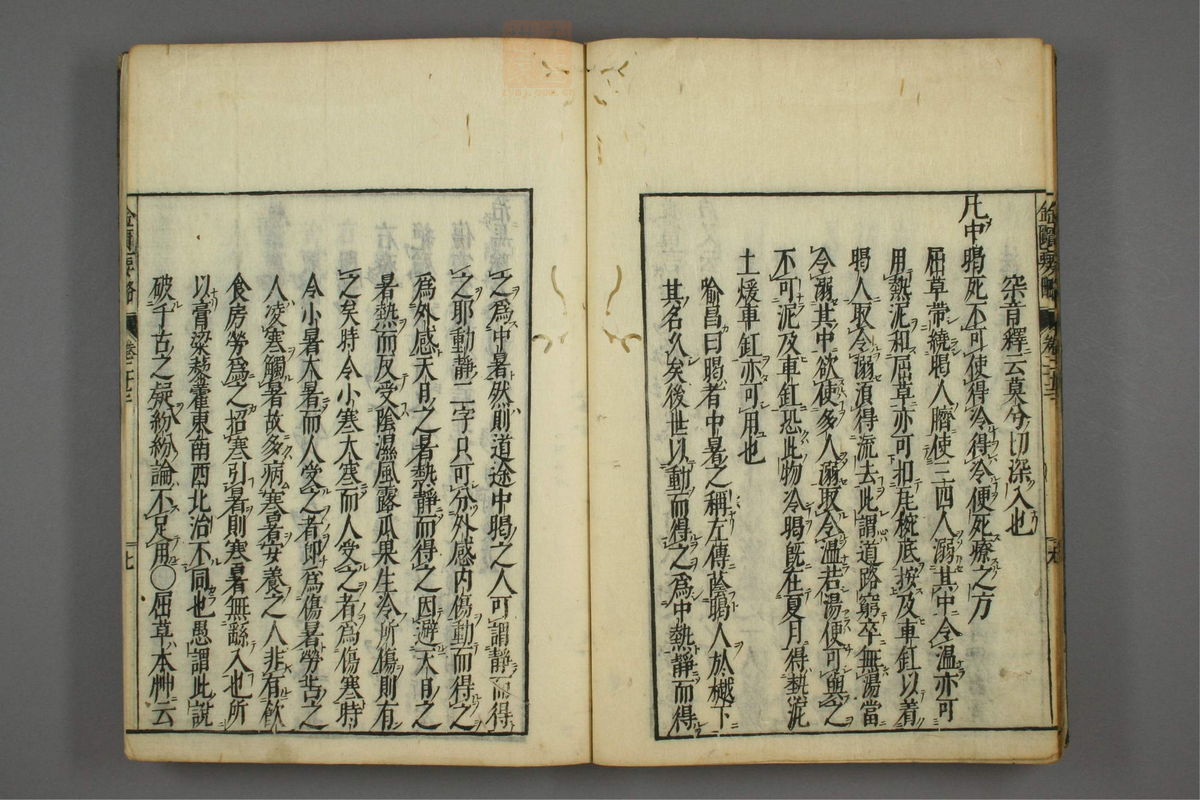 栥音釋云莫兮切深入也
凡中暍死不可使得冷得冷便死療之方
屈草帶繞暍人臍使三四人溺其中令溫亦可
用熱泥和屈草亦可扣瓦椀底按及車缸以着
暍人取令溺須得流去此謂道路窮卒無湯當
令溺其中欲使多人溺取令溫若湯便可與之
不可泥及車缸恐此物冷暍既在夏月得熱泥
土煖車缸亦可用也
喻昌曰暍者中暑之稱左傳蔭暍人於樾下
其名久矣後世以動而得之為中熱靜而得
之為中暑然則道途中暍之人可謂靜而得
之耶動靜二字只可分外感內傷動而得之
為外感天日之暑熱靜而得之因避天日之
暑熱而反受陰濕風露瓜果生冷所傷則有
之矣時令小寒大寒而人受之者為傷寒時
令小暑大暑而人受之者即為傷暑勞苦之
人凌寒觸暑故多病寒暑安養之人非有飲
食房勞為之招寒引暑則寒暑無繇入也所
以膏粱藜藿東南西北治不同也愚謂此說
破千古之疑紛紛論不足用○屈草本艸云